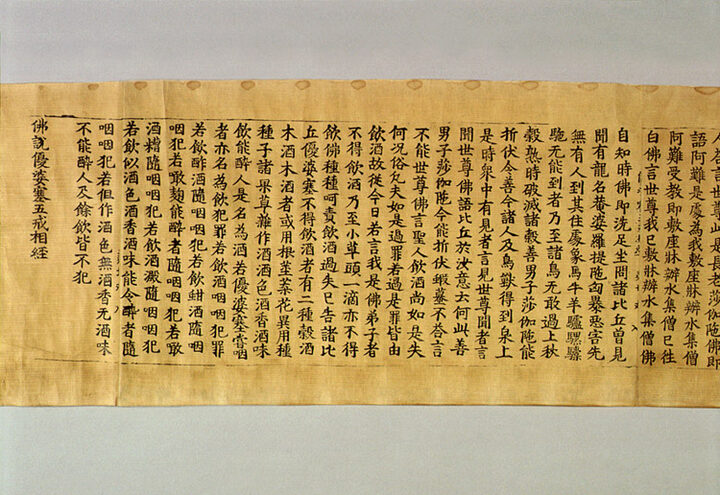 語阿難是處為我敷座牀辦水集僧
阿難受教即敷座牀辦水集僧已往
白佛言世尊我已敷牀辦水集僧佛
自知時佛即洗足坐問諸比丘曾見
聞有龍名菴婆羅提陁匈暴惡害先
無有人到其住處象馬牛羊驢騾驝
駞無能到者乃至諸鳥無敢過上秋
糓熟時破滅諸糓善男子莎伽陁能
折伏令善令諸人及鳥獸得到泉上
是時衆中有見者言見世尊聞者言
聞世尊佛語比丘於汝意云何此善
男子莎伽陁今能折伏蝦蟇不荅言
不能世尊佛言聖人飲酒尚如是失
何況俗凡夫如是過罪若過是罪皆由
飲酒故從今日若言我是佛弟子者
不得飲酒乃至小草頭一滴亦不得
飲佛種種呵責飲酒過失已告諸比
丘優婆塞不得飲酒者有二種糓酒
木酒木酒者或用根莖葉花菓用種
種子諸果草雜作酒酒色酒香酒味
飲能醉人是名為酒若優婆塞嘗咽
者亦名為飲犯罪若飲糓酒咽咽犯罪
若飲酢酒隨咽咽犯若飲甜酒隨咽
咽犯若噉麴能醉者隨咽咽犯若噉
酒糟隨咽咽犯若飲酒澱隨咽咽犯
若飲似酒色酒香酒味能令醉者隨
咽咽犯若但作酒色無酒香无酒味
不能醉人及餘飲皆不犯
佛說優婆塞五戒相經